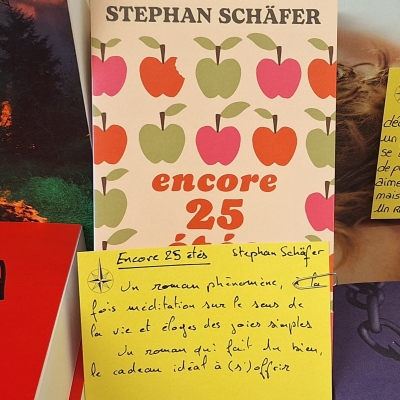 STEPHAN SCHÄFER
encore
25
étés
Encore 25 étés Stephan Schäfer
Un roman phénomène, à la
fois méditation sur le sens de
la vie et éloges des joies simples
Un roman qui fait du bien,
le cadeau idéal à (s')offrir
un
se
dep
aime
mais